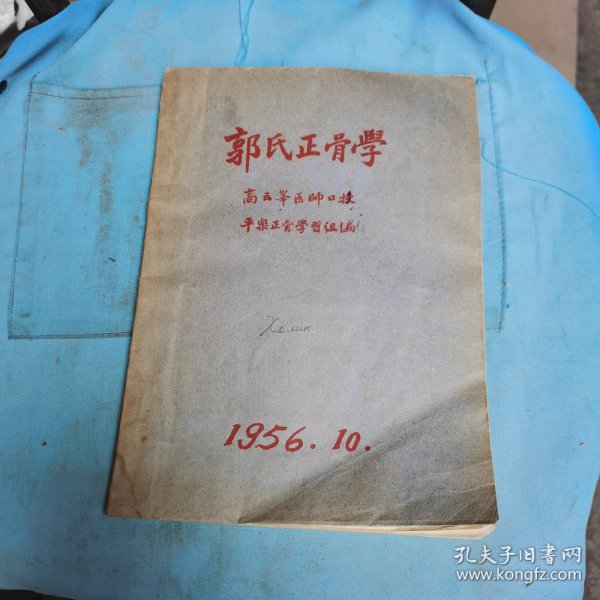 郭氏正骨學
高云峯医師口授
平樂正骨學習组编
Хелин
1956.10.
孔夫子旧書网
www.kongfz.com